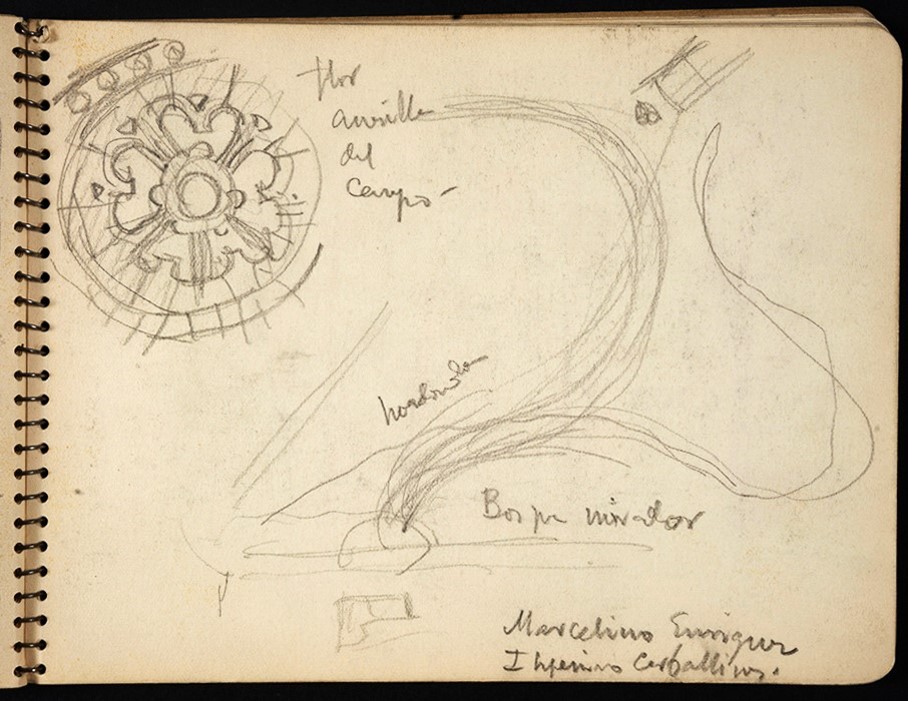 flor
amarilla
del
campo
Bosque mirador
Marcelino Enriquez
Carballino.